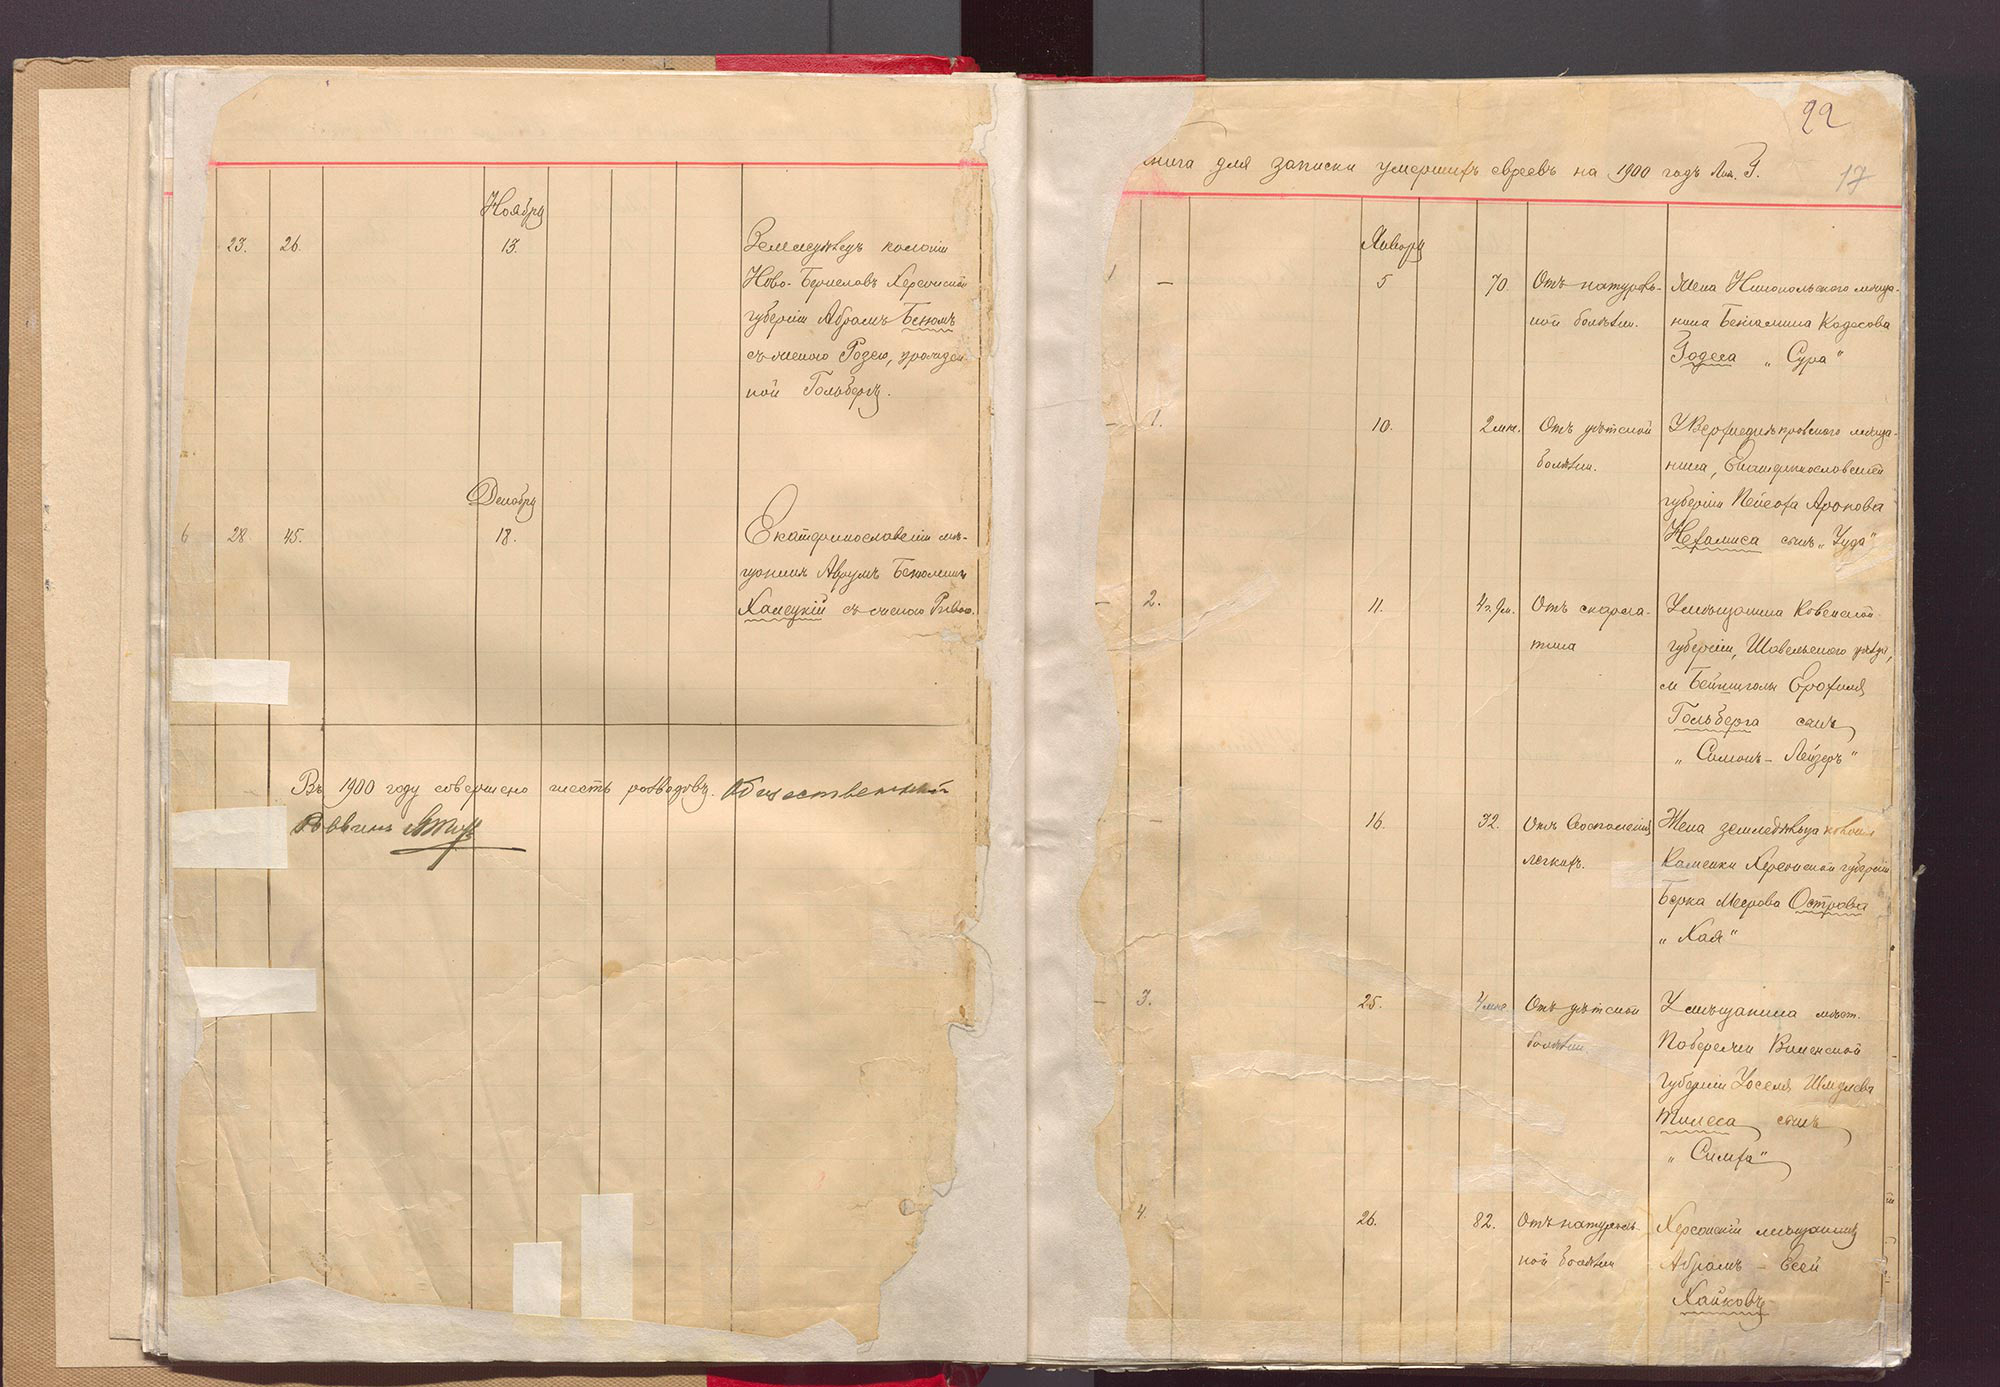 Ноября
23. 26. 13. Земледѣлецъ колоніи
Ново-Бериславъ Херсонской
губерніи Абрамъ Беккеръ
съ женою Розею, урожден-
ной Гольбергъ.
Декабря
6 28 45. 18. Екатеринославскій мѣ-
щанинъ Аврумъ Бенюминъ
Халецкій съ женою Ривою.
Въ 1900 году совершено шесть разводовъ. Общественный
Раввинъ
22
нига для записки умершихъ евреевъ на 1900 годъ Лит. Г. 17
Января
1 — 5 70. Отъ натураль- Жена Никопольскаго мѣща-
ной болѣзни. нина Беніамина Кодесова
Годеса „Сура“
1. 10. 2 мѣс. Отъ дѣтской У Верхнеднѣпровскаго мѣща-
болѣзни. нина, Екатеринославской
губерніи Пейсаха Аронова
Нехамиса сынъ „Іуда“
2. 11. 4 г. 9 м. Отъ скарла- У мѣщанина Ковенской
тина губерніи, Шавельскаго уѣзда,
м Бейсиголы Ерохима
Гольберга сынъ
„Симонъ-Лейзеръ“
— 16. 32. Отъ воспаленія Жена земледѣльца колоніи
легкихъ. Каменки Херсонской губерніи
Берка Меерова Острова
„Хая“
3. 25. 4 мѣс. Отъ дѣтской У мѣщанина мѣст.
болѣзни. Побережи Виленской
губерніи Іоселя Шмулева
Тилеса сынъ
„Симха“
4. 26. 82. Отъ натураль- Херсонскій мѣщанинъ
ной болѣзни Абрамъ-Евсей
Хайковъ